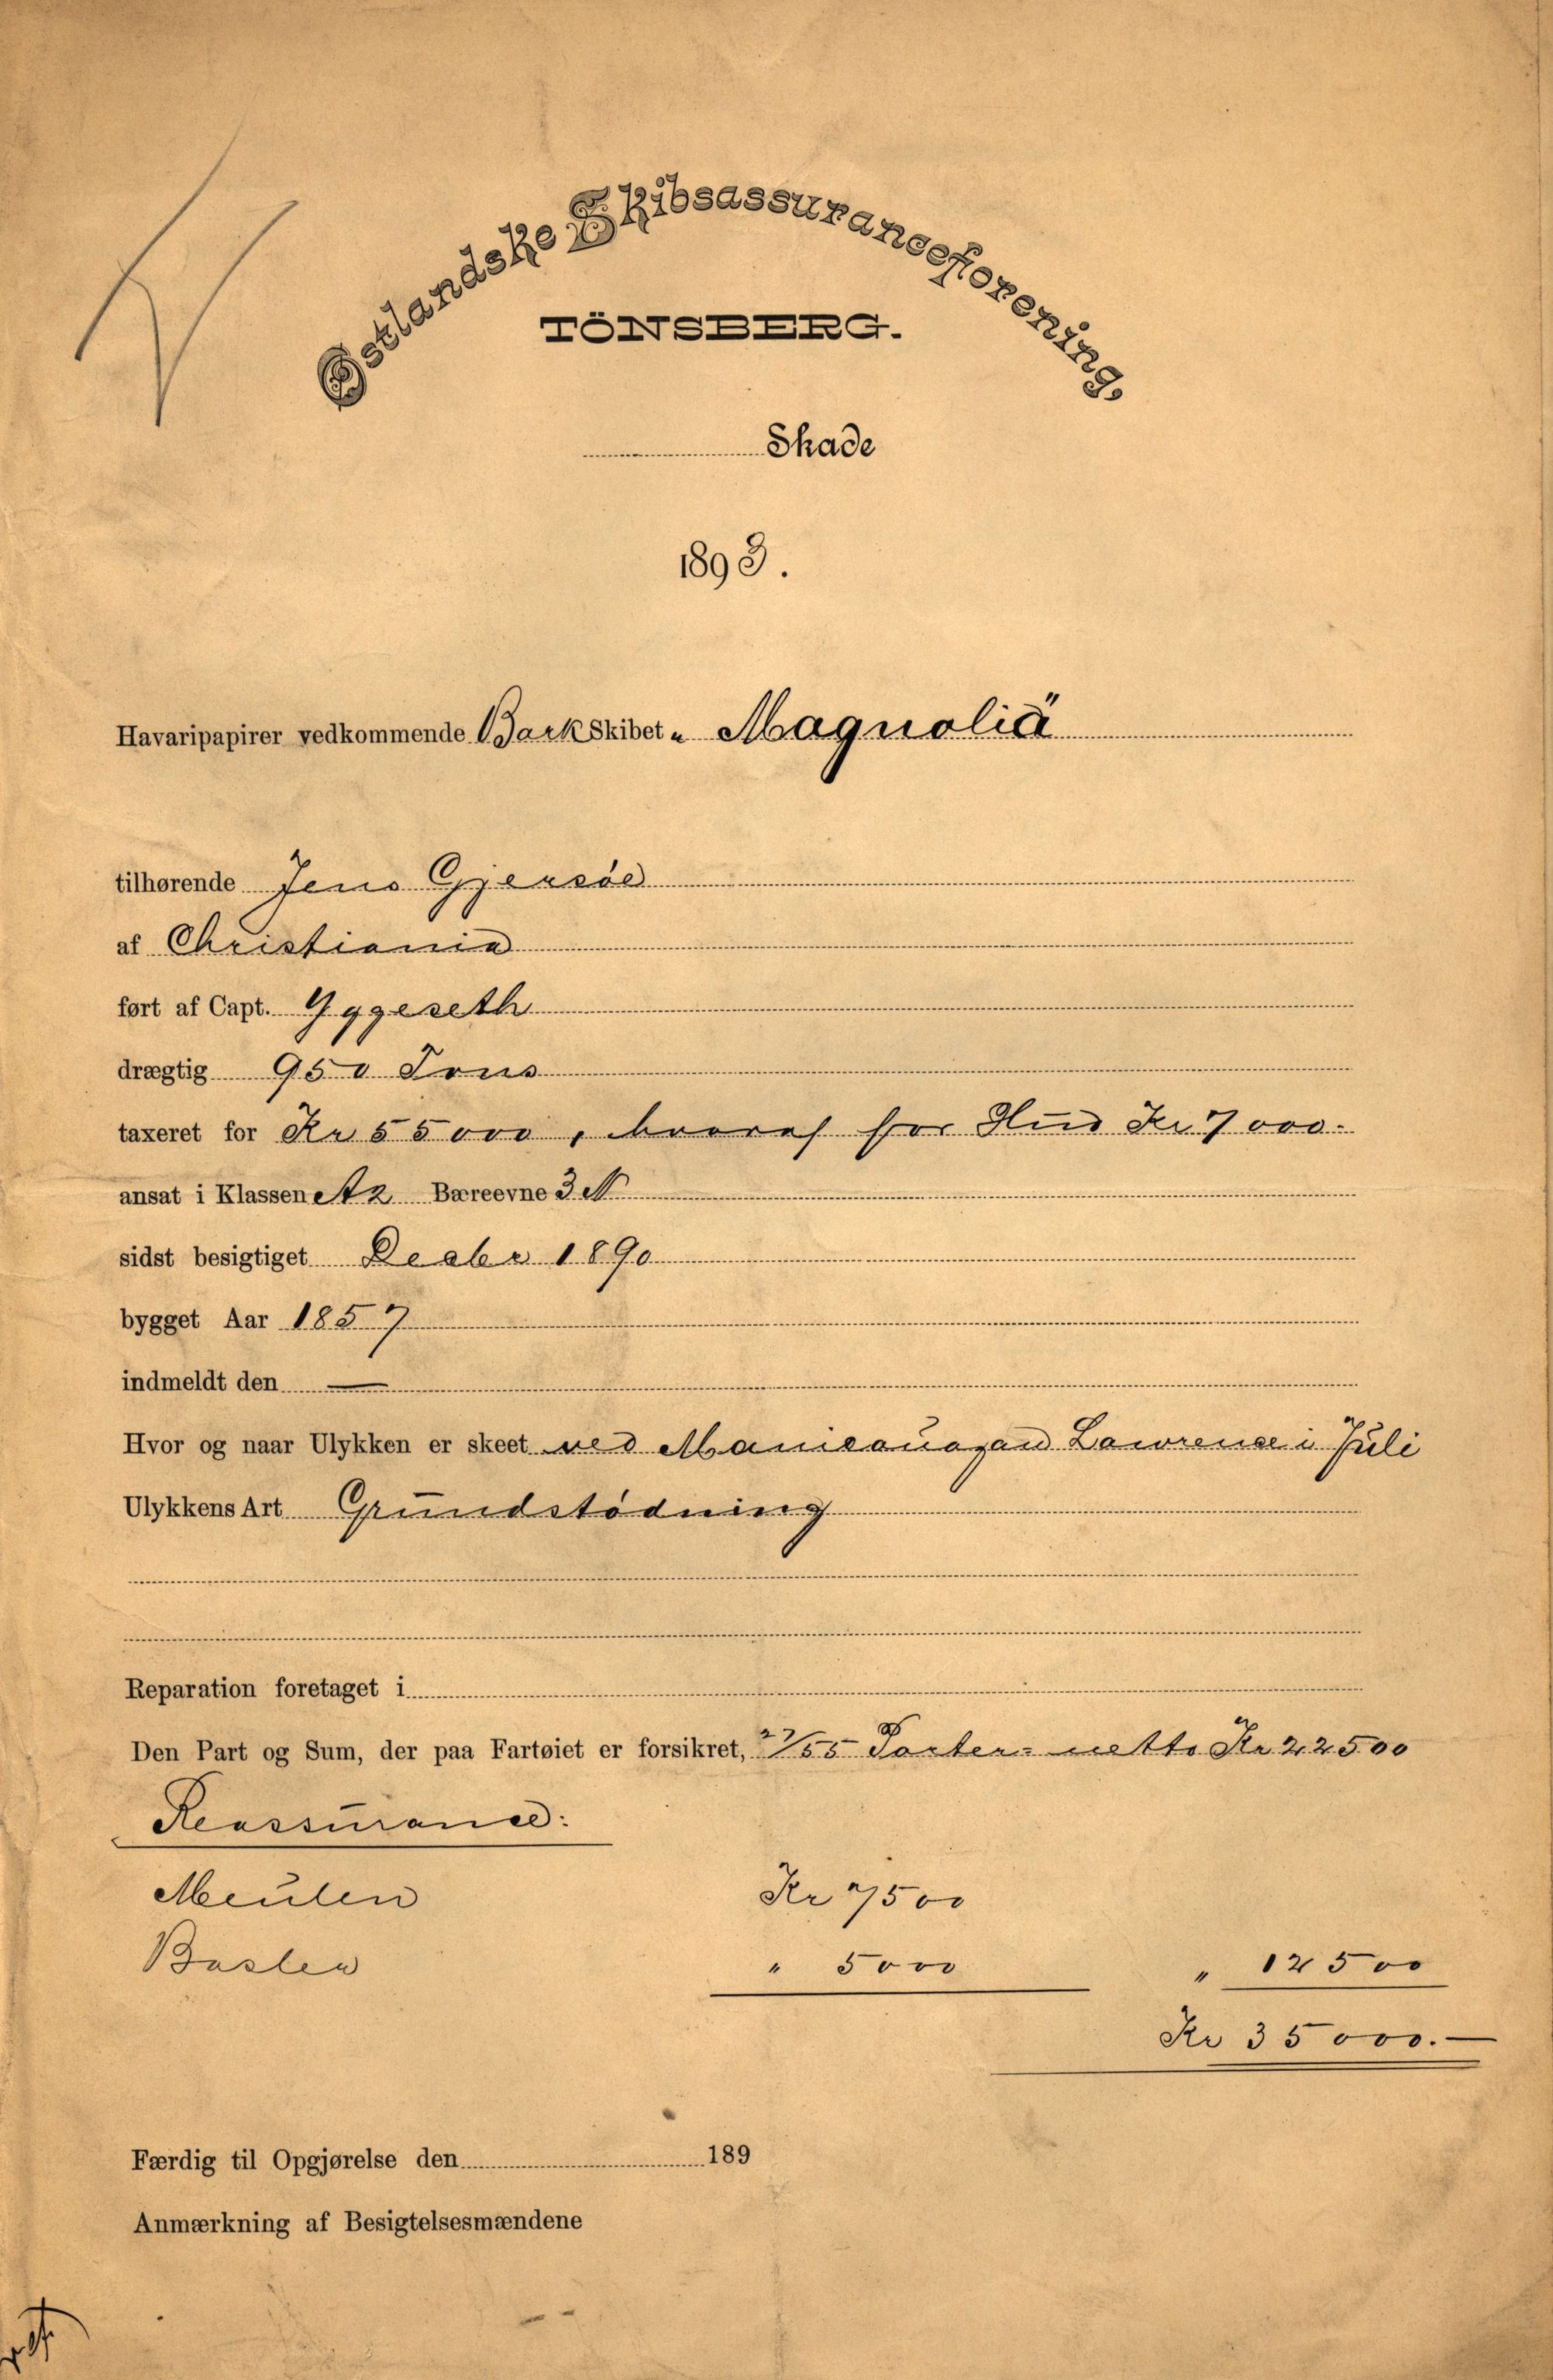 Østlandske Skibsassuranceforening,
TÖNSBERG.
Skade
1893.
Havaripapirer vedkommende Bark Skibet „Magnolia"
tilhørende Jens Gjersöe
af Christiania
ført af Capt. Yggeseth
drægtig 950 Tons
taxeret for Kr 55000, hvoraf for Hud Kr 7000.
ansat i Klassen A2 Bæreevne 3 N
sidst besigtiget Decbr 1890
bygget Aar 1857
indmeldt den —
Hvor og naar Ulykken er skeet ved Manicouagan Lawrence i Juli
Ulykkens Art Grundstödning
Reparation foretaget i
Den Part og Sum, der paa Fartøiet er forsikret, 27/55 Parter = netto Kr 22500
Reassurance:
Meulen Kr 7500
Basler " 5000 " 12500
Kr 35000.—
Færdig til Opgjørelse den 189
Anmærkning af Besigtelsesmændene